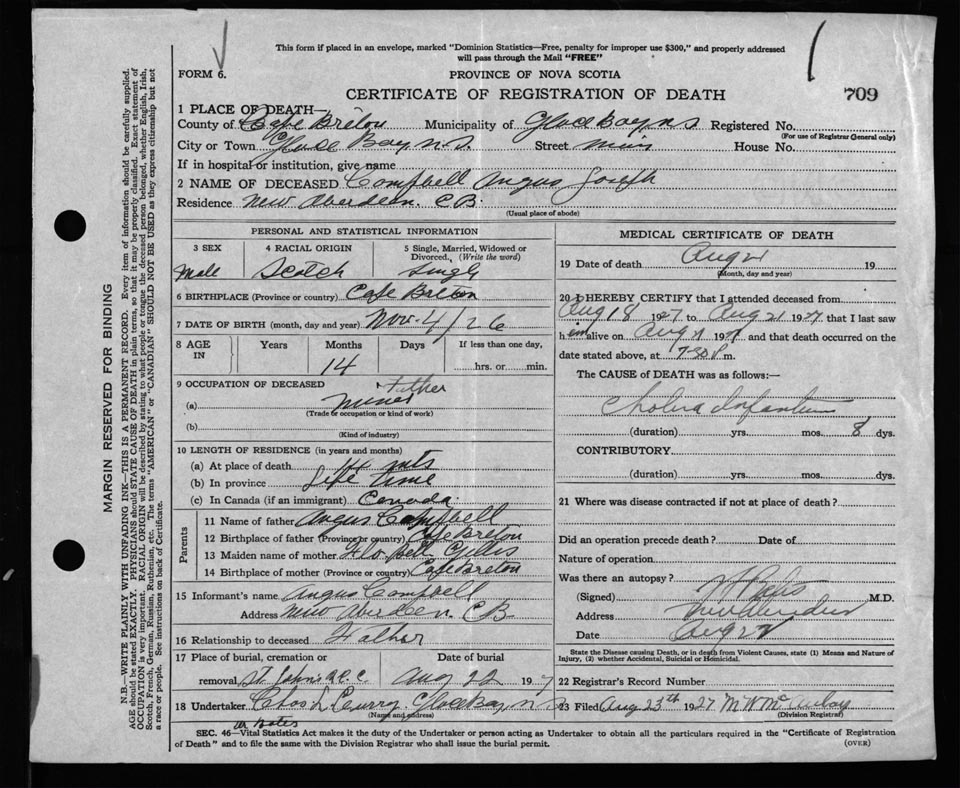 This form if placed in an envelope, marked "Dominion Statistics—Free, penalty for improper use $300," and properly addressed
will pass through the Mail "FREE"
FORM 6.
PROVINCE OF NOVA SCOTIA
CERTIFICATE OF REGISTRATION OF DEATH
709
1 PLACE OF DEATH—
County of Cape Breton Municipality of Glace Bay N.S Registered No.
(For use of Registrar General only)
City or Town Glace Bay N.S. Street House No.
If in hospital or institution, give name
2 NAME OF DECEASED Campbell Angus Joseph
Residence New Aberdeen. C.B.
(Usual place of abode)
PERSONAL AND STATISTICAL INFORMATION
3 SEX
4 RACIAL ORIGIN
5 Single, Married, Widowed or Divorced. (Write the word)
Male Scotch Single
6 BIRTHPLACE (Province or country) Cape Breton
7 DATE OF BIRTH (month, day and year) Nov. 4/26
8 AGE IN Years Months Days If less than one day,
14 hrs. or min.
9 OCCUPATION OF DECEASED Father
(a) Miner
(Trade or occupation or kind of work)
(b)
(Kind of industry)
10 LENGTH OF RESIDENCE (in years and months)
(a) At place of death 14 mts
(b) In province Life Time
(c) In Canada (if an immigrant) Canada
Parents
11 Name of father Angus Campbell
12 Birthplace of father (Province or country) Cape Breton
13 Maiden name of mother Gillis
14 Birthplace of mother (Province or country) Cape Breton
15 Informant's name Angus Campbell
Address New Aberdeen. C B
16 Relationship to deceased Father
17 Place of burial, cremation or Date of burial
removal, St. Johns Aug 22 1927
18 Undertaker Chas L Curry Glace Bay N S
(Name and address)
MEDICAL CERTIFICATE OF DEATH
19 Date of death Aug 21 19
(Month, day and year)
20 I HEREBY CERTIFY that I attended deceased from
Aug 18 1927 to Aug 21 1927 that I last saw
him alive on Aug 21 1927 and that death occurred on the
date stated above, at 7-30 P m.
The CAUSE of DEATH was as follows:—
Cholera Infantum
(duration) yrs. mos. 8 dys.
CONTRIBUTORY
(duration) yrs. mos. dys.
21 Where was disease contracted if not at place of death?
Did an operation precede death? Date of
Nature of operation
Was there an autopsy?
(Signed) M.D.
Address New Aberdeen
Date Aug 22
State the Disease causing Death, or in death from Violent Causes, state (1) Means and Nature of
Injury, (2) whether Accidental, Suicidal or Homicidal.
22 Registrar's Record Number
23 Filed Aug 23th 1927 M W McAulay
(Division Registrar)
SEC. 46—Vital Statistics Act makes it the duty of the Undertaker or person acting as Undertaker to obtain all the particulars required in the "Certificate of Registration
of Death" and to file the same with the Division Registrar who shall issue the burial permit.
(OVER)
MARGIN RESERVED FOR BINDING
N.B.—WRITE PLAINLY WITH UNFADING INK—THIS IS A PERMANENT RECORD. Every item of information should be carefully supplied.
AGE should be stated EXACTLY. PHYSICIANS should STATE CAUSE OF DEATH in plain terms, so that it may be properly classified. Exact statement of
OCCUPATION is very important. RACIAL ORIGIN will be described by stating to what people or tongue the deceased person belonged, whether English, Irish,
Scotch, French, German, Russian, Ruthenian, etc. The terms "AMERICAN" or "CANADIAN" SHOULD NOT BE USED as they express citizenship but not
a race or people. See instructions on back of Certificate.